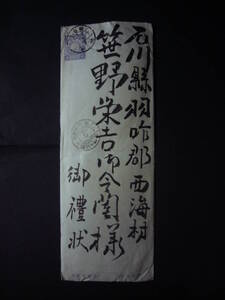 石川縣羽咋郡西海村
笹野栄吉御令閨様
御禮状